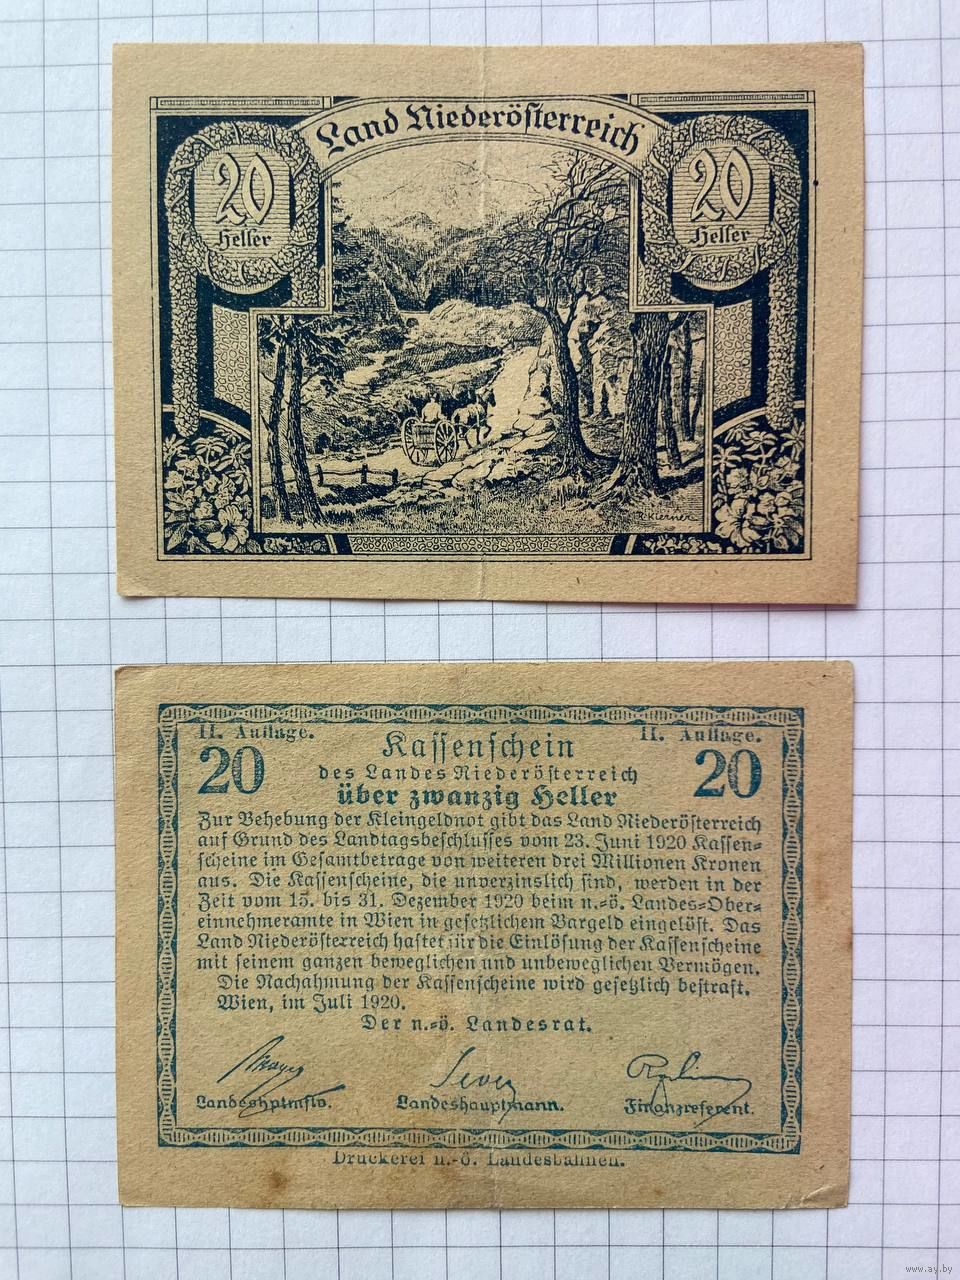 Land Niederösterreich
20
Heller
20
Heller
R. Klerner
II. Auflage.
II. Auflage.
20
20
Kassenschein
des Landes Niederösterreich
über zwanzig Heller
Zur Behebung der Kleingeldnot gibt das Land Niederösterreich
auf Grund des Landtagsbeschlusses vom 23. Juni 1920 Kassen-
scheine im Gesamtbetrage von weiteren drei Millionen Kronen
aus. Die Kassenscheine, die unverzinslich sind, werden in der
Zeit vom 15. bis 31. Dezember 1920 beim n.-ö. Landes-Ober-
einnehmeramte in Wien in gesetzlichem Bargeld eingelöst. Das
Land Niederösterreich haftet für die Einlösung der Kassenscheine
mit seinem ganzen beweglichen und unbeweglichen Vermögen.
Die Nachahmung der Kassenscheine wird gesetzlich bestraft.
Wien, im Juli 1920.
Der n.-ö. Landesrat.
Sever
Landeshptmstv.
Landeshauptmann.
Finanzreferent.
Druckerei n.-ö. Landesbahnen.
www.ay.by